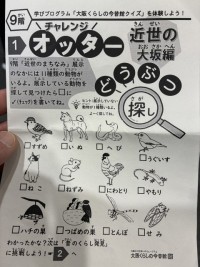 9階
学びプログラム「大阪くらしの今昔館クイズ」を体験しよう!
チャレンジ
1
オッター
近世の
きんせい
大阪編
おおさかへん
9階「近世のまちなみ」展示
のなかには11種類の動物が
いるよ。展示している動物を
探して見つけたら□に
✓(チェック)を書いてね。
どうぶつ
探し
さが
すずめ
いぬ
へび
うぐいす
ねこ
ねずみ
にわとり
やもり
ハチの巣
つばめの巣
とんぼ
せみ
わかったかな?次は「昔のくらし発見」
に挑戦しよう!
2
へ
大阪くらしの今昔館